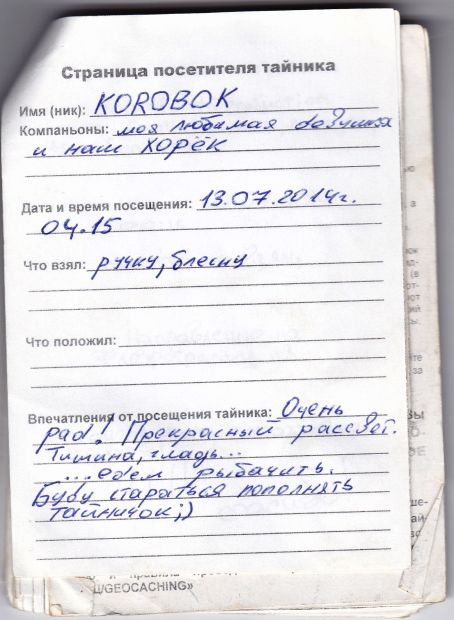 Страница посетителя тайника
Имя (ник): KOROBOK
Компаньоны: моя любимая
и наш хорёк
Дата и время посещения: 13.07.2014г.
04.15
Что взял: ручку, блесну
Что положил:
Впечатления от посещения тайника: Очень
рад! Прекрасный рассвет.
Тишина, гладь...
...едем рыбачить.
Буду стараться пополнять
тайничок;)
/GEOCACHING»